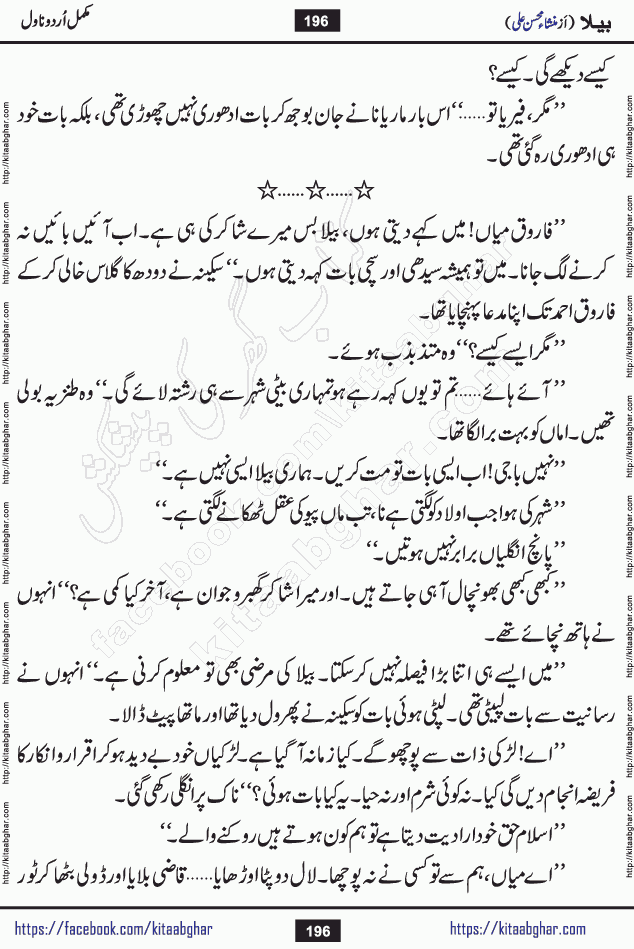 بیلا (از منشاء محسن علی) 196 مکمل اُردو ناول
کیسے دیکھے گی۔ کیسے؟
’’مگر، فیریا تو......‘‘ اس بار ماریانا نے جان بوجھ کر بات ادھوری نہیں چھوڑی تھی، بلکہ بات خود
ہی ادھوری رہ گئی تھی۔
☆......☆......☆
’’فاروق میاں! میں کہے دیتی ہوں، بیلا بس میرے شاکر کی ہی ہے۔ اب آئیں بائیں نہ
کرنے لگ جانا۔ میں تو ہمیشہ سیدھی اور سچی بات کہہ دیتی ہوں۔‘‘ سکینہ نے دودھ کا گلاس خالی کر کے
فاروق احمد تک اپنا مدعا پہنچایا تھا۔
’’مگر ایسے کیسے؟‘‘ وہ متذبذب ہوئے۔
’’آئے ہائے......تم تو یوں کہہ رہے ہو تمہاری بیٹی شہر سے ہی رشتہ لائے گی۔‘‘ وہ طنزیہ بولی
تھیں۔ اماں کو بہت برا لگا تھا۔
’’نہیں باجی! اب ایسی بات تو مت کریں۔ ہماری بیلا ایسی نہیں ہے۔‘‘
’’شہر کی ہوا جب اولاد کو لگتی ہے نا، تب ماں پیو کی عقل ٹھکانے لگتی ہے۔‘‘
’’پانچ انگلیاں برابر نہیں ہوتیں۔‘‘
’’کبھی کبھی بھونچال آ ہی جاتے ہیں۔ اور میرا شاکر گھبرو جوان ہے، آخر کیا کمی ہے؟‘‘ انہوں
نے ہاتھ نچائے تھے۔
’’میں ایسے ہی اتنا بڑا فیصلہ نہیں کر سکتا۔ بیلا کی مرضی بھی تو معلوم کرنی ہے۔‘‘ انہوں نے
رسانیت سے بات لپیٹی تھی۔ لپٹی ہوئی بات کو سکینہ نے پھرول دیا تھا اور ماتھا پیٹ ڈالا۔
’’اے! لڑکی ذات سے پوچھو گے۔ کیا زمانہ آ گیا ہے۔ لڑکیاں خود بے دید ہو کر اقرار و انکار کا
فریضہ انجام دیں گی کیا۔ نہ کوئی شرم اور نہ حیا۔ یہ کیا بات ہوئی؟‘‘ ناک پر انگلی رکھی گئی۔
’’اسلام حق خود ارادیت دیتا ہے تو ہم کون ہوتے ہیں روکنے والے۔‘‘
’’اے میاں، ہم سے تو کسی نے نہ پوچھا۔ لال دوپٹا اوڑھایا......قاضی بلایا اور ڈولی بٹھا کر ٹور
https://facebook.com/kitaabghar 196 https://kitaabghar.com
http://kitaabghar.com http://kitaabghar.com http://kitaabghar.com http://kitaabghar.com http://kitaabghar.com http://kitaabghar.com http://kitaabghar.com http://kitaabghar.com
http://kitaabghar.com http://kitaabghar.com http://kitaabghar.com http://kitaabghar.com http://kitaabghar.com http://kitaabghar.com http://kitaabghar.com http://kitaabghar.com
کتاب گھر کی پیشکش
kitaabghar.com
facebook.com/kitaabghar